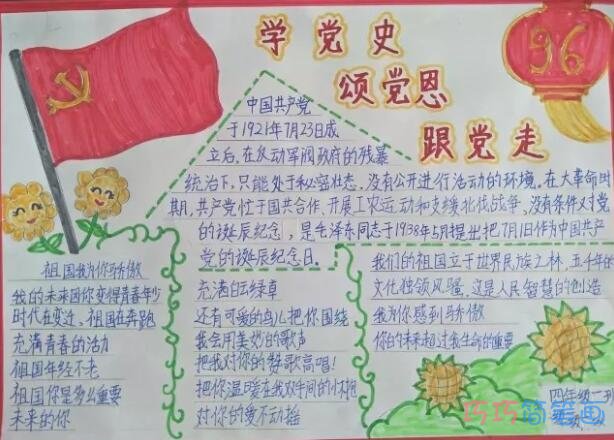 学党史
颂党恩
跟党走
96
中国共产党
于1921年7月23日成
立后,在反动军阀政府的残暴
统治下,只能处于秘密状态,没有公开进行活动的环境。在大革命时
期,共产党忙于国共合作、开展工农运动和支援北伐战争,没有条件对党
的诞辰纪念,是毛泽东同志于1938年5月提出把7月1日作为中国共产
党的诞辰纪念日。
祖国我为你骄傲
我的未来因你变得青春年少
时代在变迁、祖国在奔跑
充满青春的活力
祖国年经不老
祖国你是多么重要
未来的你
充满白云绿草
还有可爱的鸟儿把你围绕
我会用美妙的歌声
把我对你的赞歌高唱!
把你温暖在我双手间的怀抱
对你的爱不动摇
我们的祖国立于世界民族之林,五千年的
文化独领风骚,这是人民智慧的创造
我为你感到骄傲
你的未来超过我生命的重要
四年级二班
巧巧简笔画